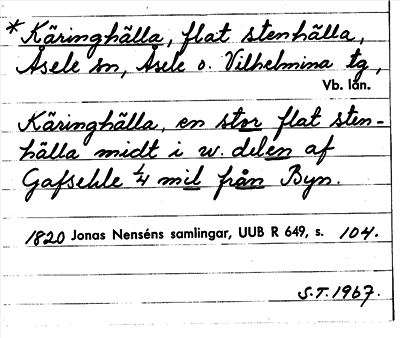 *Käringhälla, flat stenhälla,
Åsele sn, Åsele o. Vilhelmina tg,
Vb. län.
Käringhälla, en stor flat sten-
hälla midt i w. delen af
Gafsehle 1/4 mil från Byn.
1820 Jonas Nenséns samlingar, UUB R 649, s. 104.
S.T. 1967.